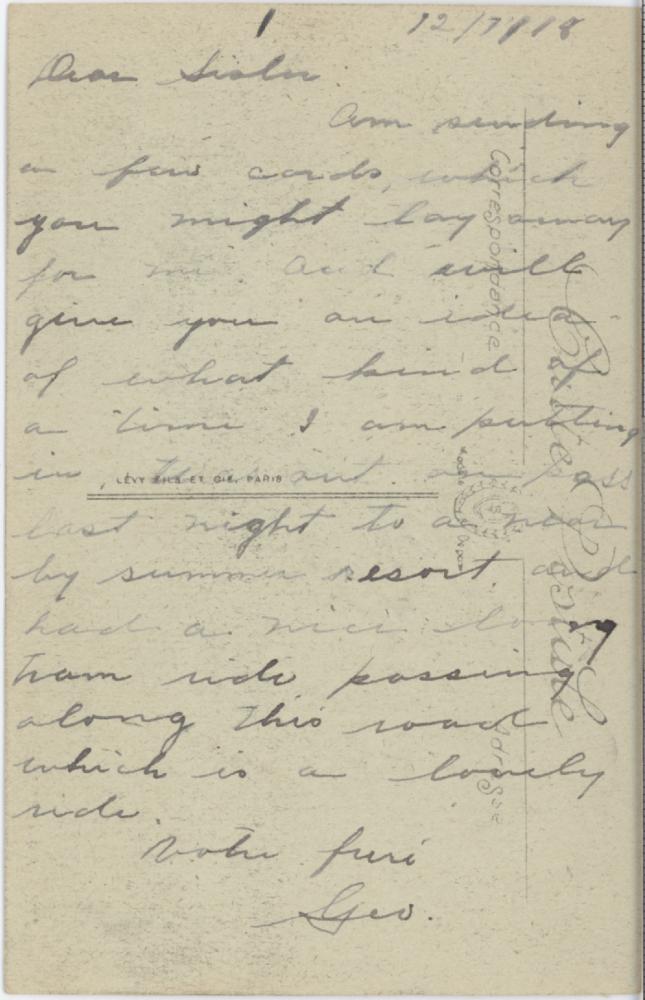 1 12/7/18
Dear Sister
Am sending
a few cards, which
you might lay away
for me. And will
give you an idea
of what kind of
a time I am putting
in, out on pass
last night to a near
by summer resort, and
had a nice long
tram ride passing
along this road
which is a lovely
ride.
Votre
Geo.
LÉVY FILS ET CIE, PARIS
Correspondance
Carte Postale
Adresse